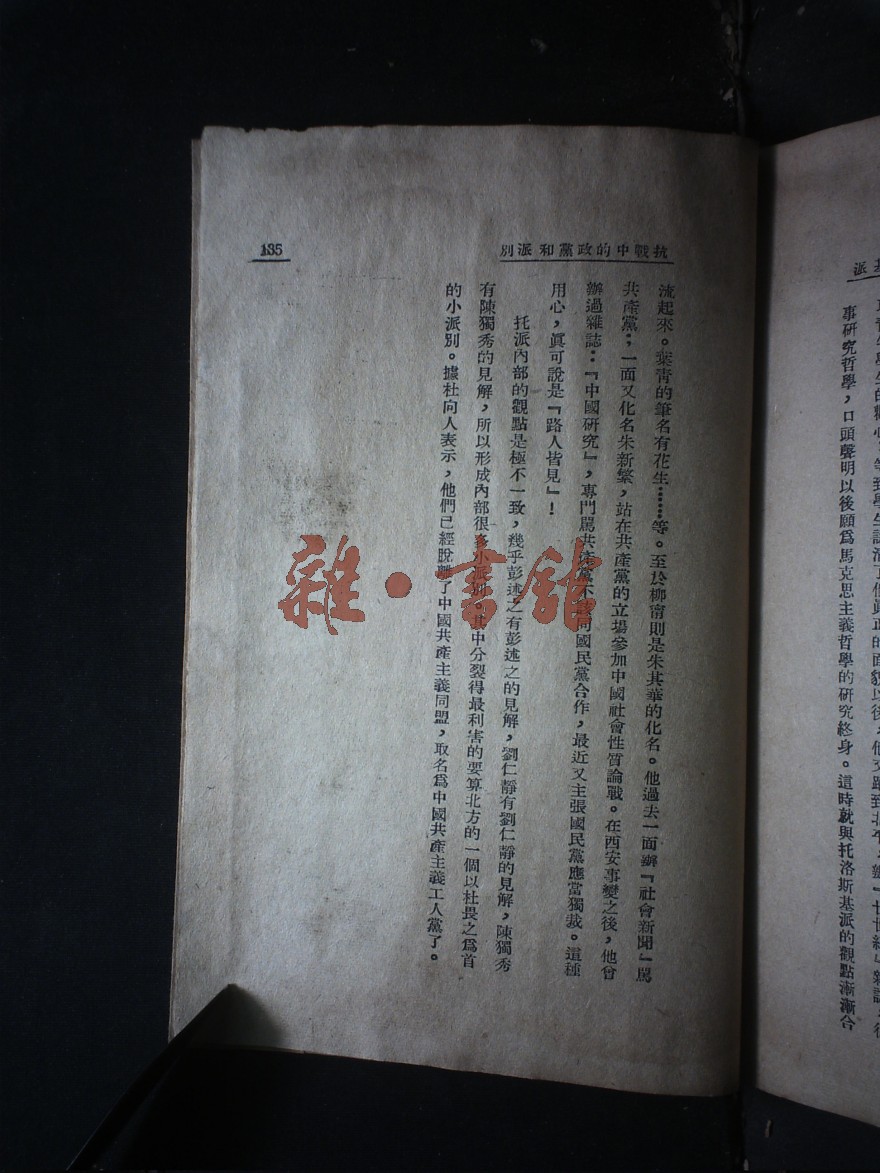 抗戰中的政黨和派別
135
流起來。葉青的筆名有花生……等。至於柳甯則是朱其華的化名。他過去一面辦『社會新聞』罵
共產黨；一面又化名朱新繁，站在共產黨的立場參加中國社會性質論戰。在西安事變之後，他曾
辦過雜誌：『中國研究』，專門罵共產黨不同國民黨合作，最近又主張國民黨應當獨裁。這種
用心，眞可說是『路人皆見』！
托派內部的觀點是極不一致，幾乎彭述之有彭述之的見解，劉仁靜有劉仁靜的見解，陳獨秀
有陳獨秀的見解，所以形成內部很多小派別，其中分裂得最利害的要算北方的一個以杜畏之爲首
的小派別。據杜向人表示，他們已經脫離了中國共產主義同盟，取名爲中國共產主義工人黨了。
雜·書館
基派
事研究哲學，口頭聲明以後願爲馬克思主義哲學的研究終身。這時就與托洛斯基派的觀點漸漸合